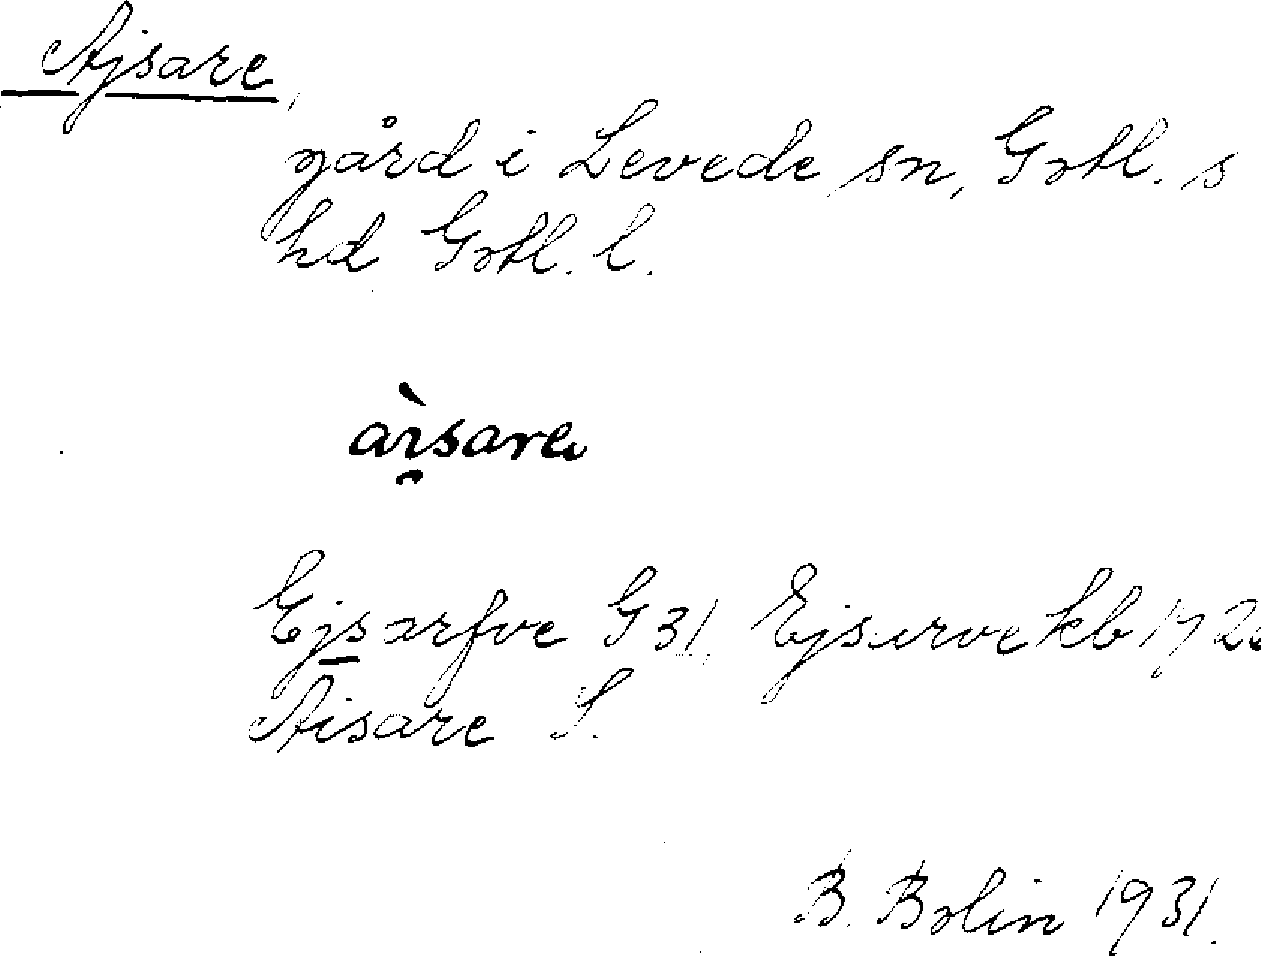 Ajsare,
gård i Levede sn, Gotl. s
hd Gotl. l.
àı̯sare
Ejsarfve G 31. Ejsurve kb 172
Aisare S.
B. Bolin 1931.